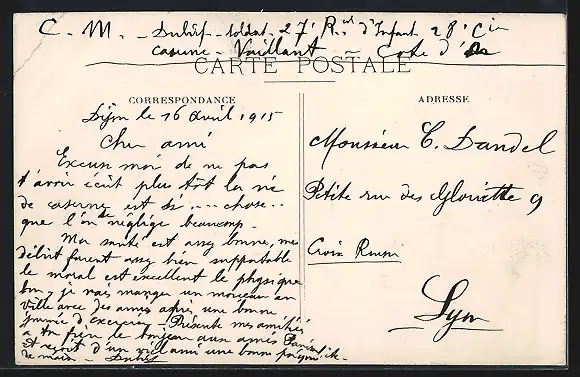 C. M. - Duluf - soldat - 27e Rgt d'Infant. 28e Cie
caserne - Vaillant - Cote d'Or
CARTE POSTALE
CORRESPONDANCE
Dijon le 16 avril 1915
Cher ami
Excuse moi de ne pas
t'avoir écrit plus tôt la vie
de caserne est si .... chose ..
que l'on néglige beaucoup -
Ma santé est assez bonne, mes
débuts furent assez bien supportable
le moral est excellent le physique
bon, je vais manger un morceau en
ville avec des amis après une bonne
journée d'exercice - Présente mes amitiés
à ton frère le bonjour aux amis
et reçoit d'un vieil ami une bonne poignée
de main -
ADRESSE
Monsieur C. Dandel
Petite rue des Gloriette 9
Croix Rousse
Lyon